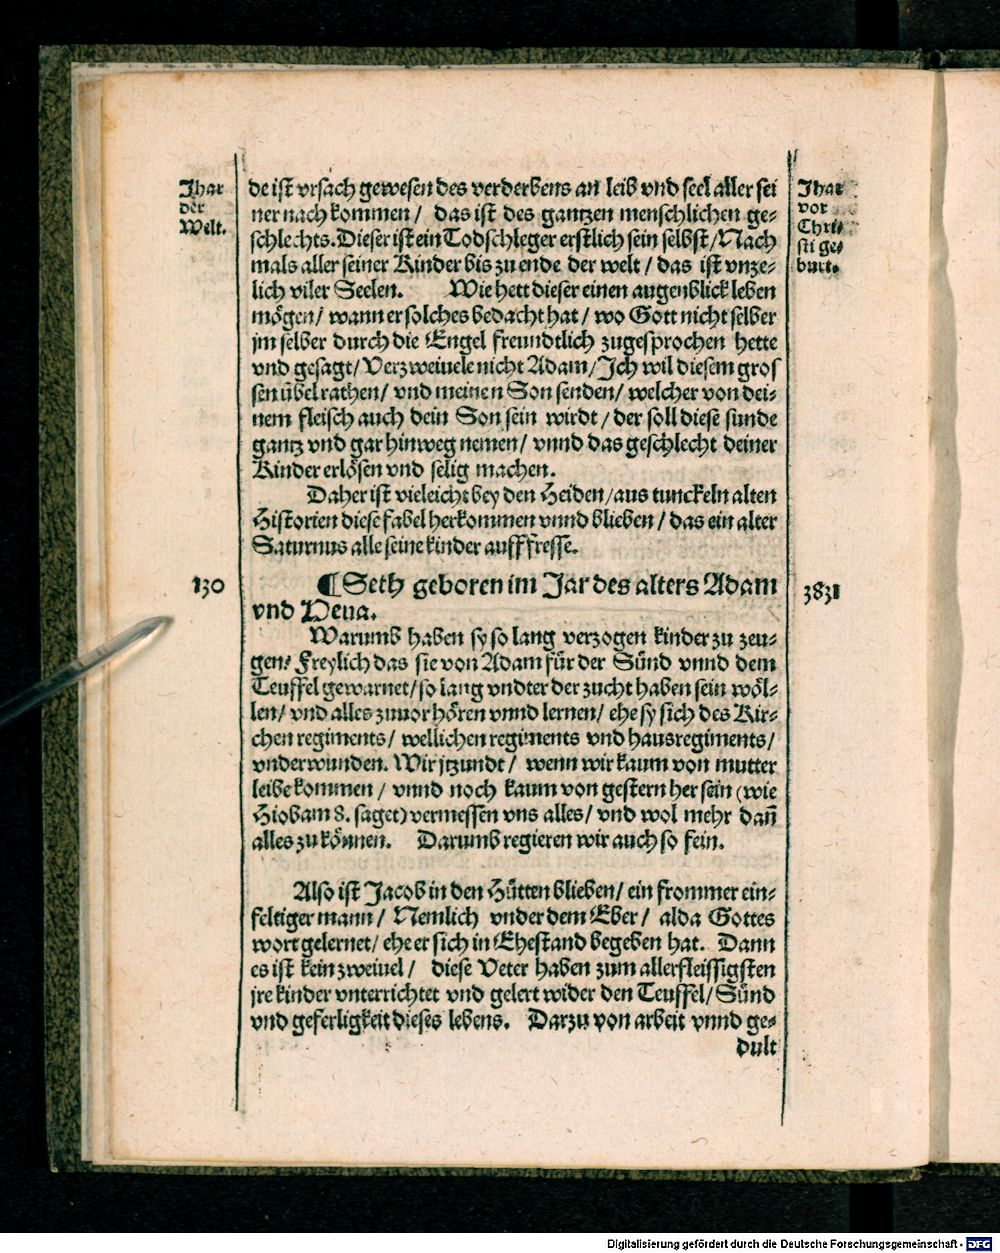 Jhar
der
Welt.
Jhar
vor
Chri⸗
sti ge⸗
burt.
de ist vrsach gewesen des verderbens an leib vnd seel aller sei
ner nach kommen / das ist des gantzen menschlichen ge⸗
schlechts. Dieser ist ein Todschleger erstlich sein selbst / Nach
mals aller seiner Kinder bis zu ende der welt / das ist vnze⸗
lich viler Seelen. Wie hett dieser einen augenblick leben
mögen / wann er solches bedacht hat / wo Gott nicht selber
jm selber durch die Engel freundtlich zugesprochen hette
vnd gesagt / Verzweiuele nicht Adam / Ich wil diesem gros
sen übel rathen / vnd meinen Son senden / welcher von dei⸗
nem fleisch auch dein Son sein wirdt / der soll diese sunde
gantz vnd gar hinweg nemen / vnnd das geschlecht deiner
Kinder erlösen vnd selig machen.
Daher ist vieleicht bey den Heiden / aus tunckeln alten
Historien diese fabel herkommen vnnd blieben / das ein alter
Saturnus alle seine kinder aufffresse.
130
¶ Seth geboren im Jar des alters Adam
3831
vnd Heua.
Warumb haben sy so lang verzogen kinder zu zeu⸗
gen? Freylich das sie von Adam für der Sünd vnnd dem
Teuffel gewarnet / so lang vndter der zucht haben sein wöl⸗
len / vnd alles zuuor hören vnnd lernen / ehe sy sich des Kir⸗
chen regiments / welltichen regiments vnd hausregiments /
vnderwunden. Wir jtzundt / wenn wir kaum von mutter
leibe kommen / vnnd noch kaum von gestern her sein (wie
Hiob am 8. saget) vermessen vns alles / vnd wol mehr dañ
alles zu können. Darumb regieren wir auch so fein.
Also ist Jacob in den Hütten blieben / ein frommer ein⸗
feltiger mann / Nemlich vnder dem Eber / alda Gottes
wort gelernet / ehe er sich in Ehestand begeben hat. Dann
es ist kein zweiuel / diese Veter haben zum allerfleissigsten
jre kinder vnterrichtet vnd gelert wider den Teuffel / Sünd
vnd geferligkeit dieses lebens. Darzu von arbeit vnnd ge⸗
dult
Digitalisierung gefördert durch die Deutsche Forschungsgemeinschaft - DFG